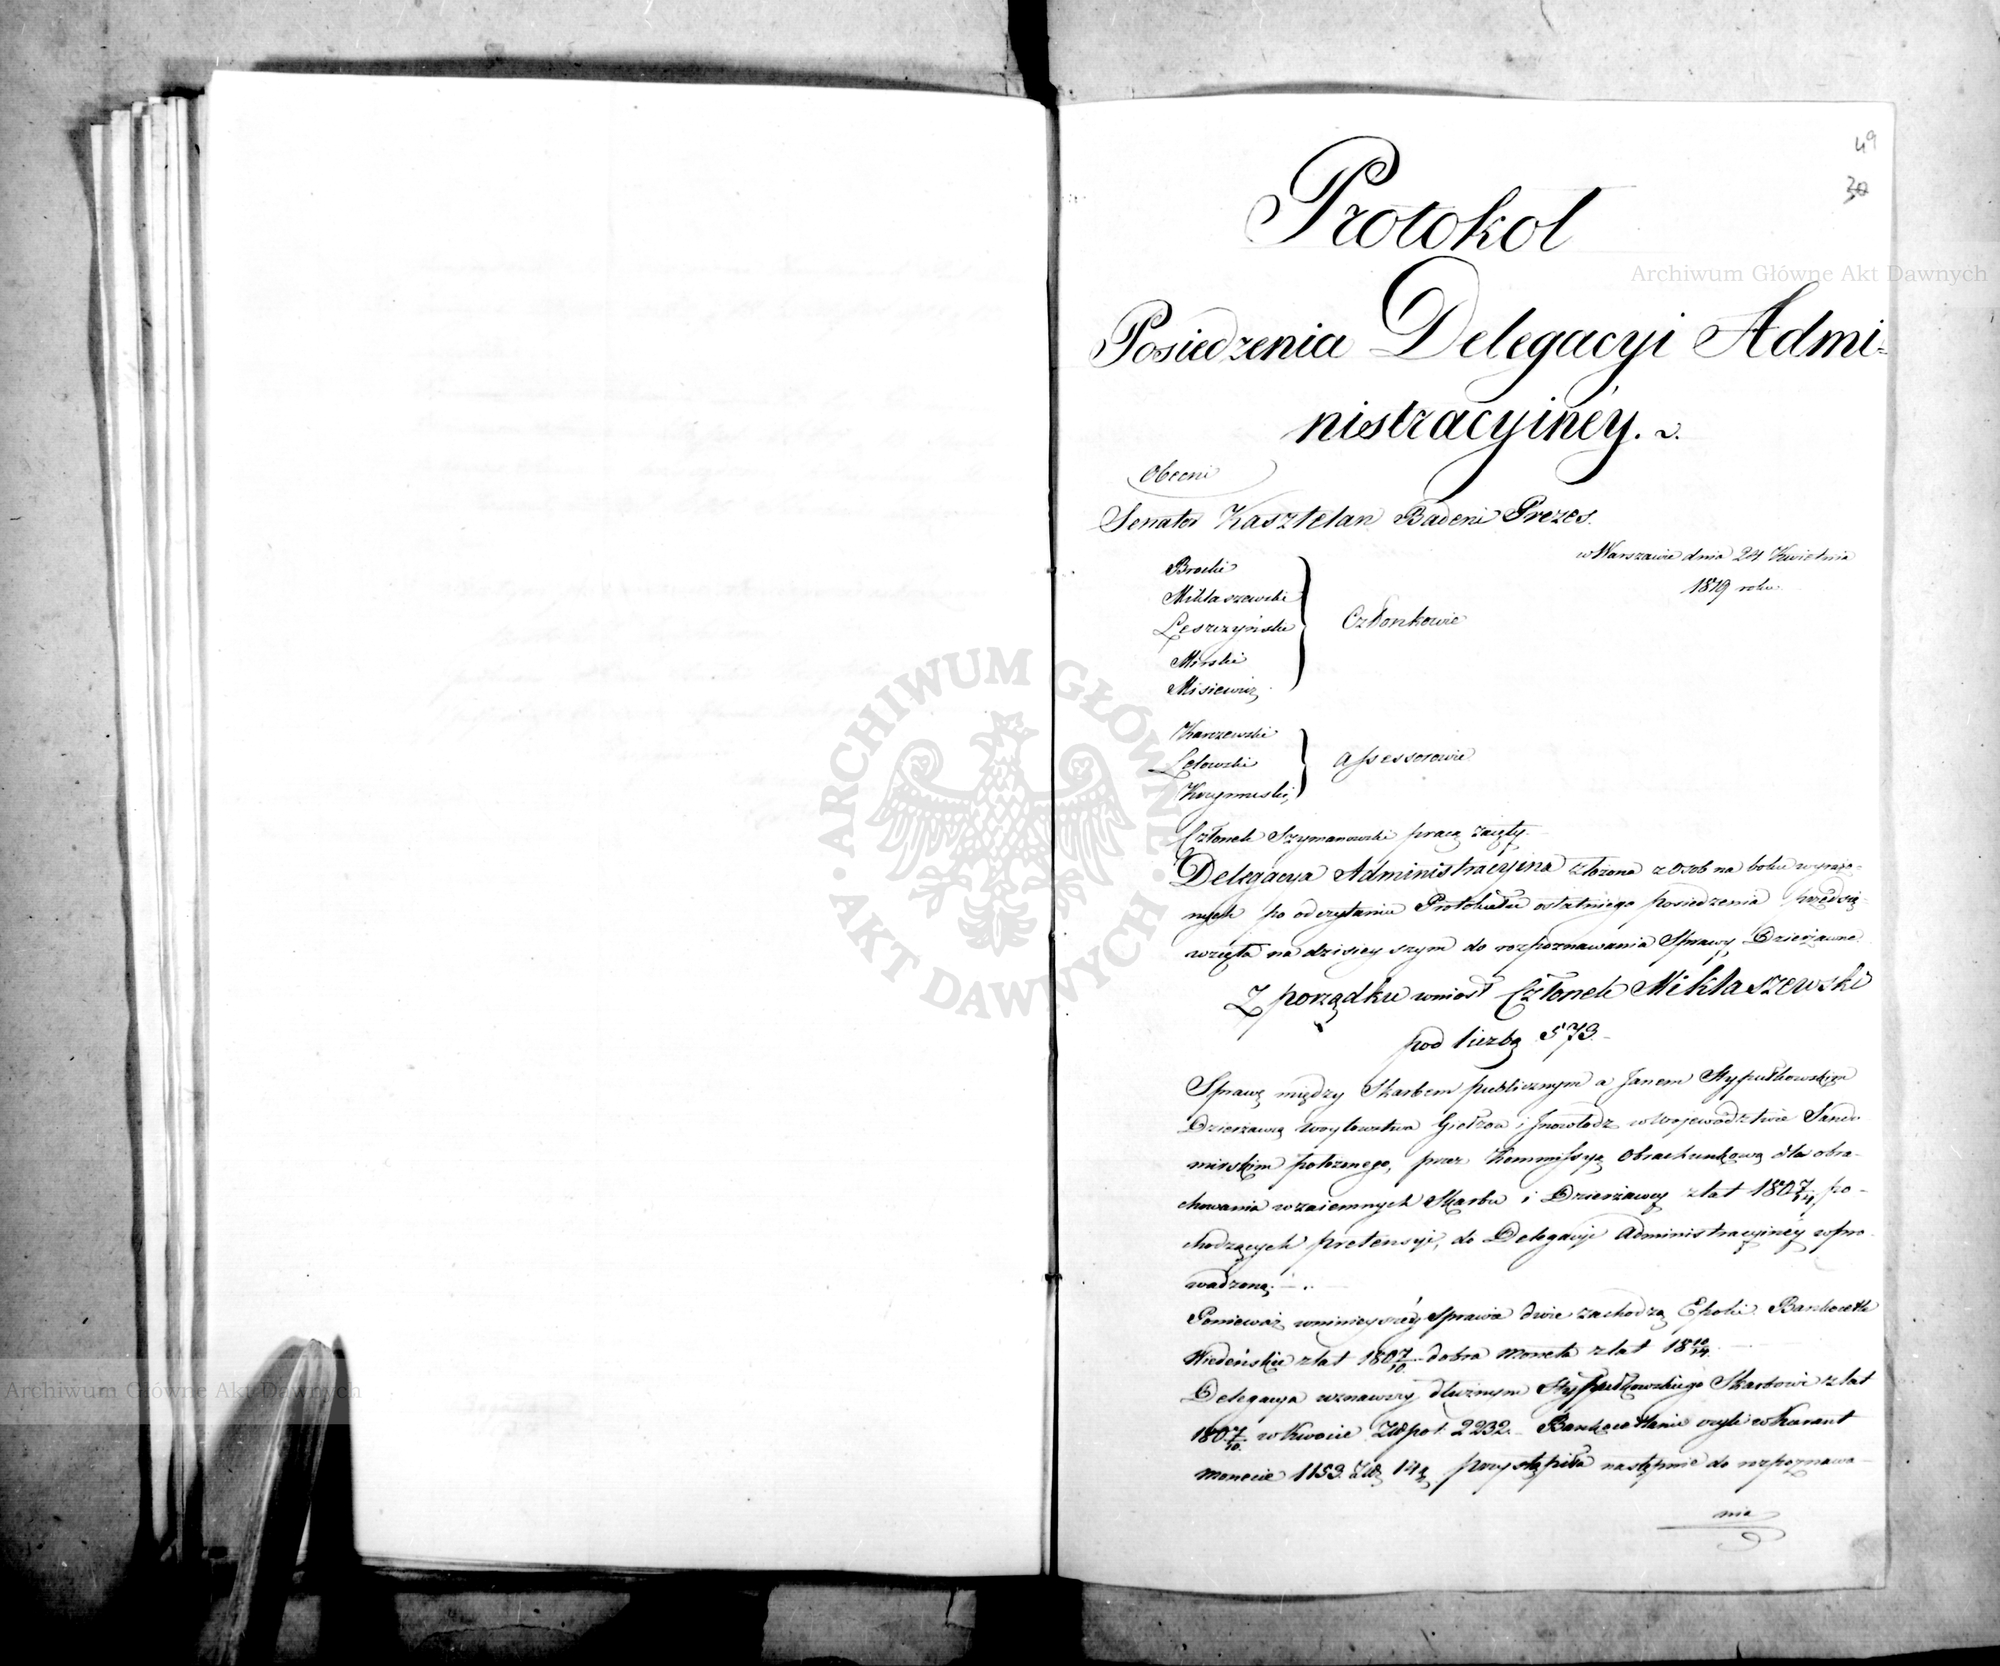 49
30
Protokol
Posiedzenia Delegacyi Admi=
nistracyinéy.
Obecni
Senator Kasztelan Badeni Prezes.
w Warszawie dnia 24 Kwietnia
1819 roku
Brocki
Miklaszewski
Leszczyński
Mirski
Misiewicz
Członkowie
Karczewski
Lelowski
Krzymuski
Assessorowie
Członek Szymanowski pracą zaięty.
Delegacya Administracyina złożona z osob na boku wymie=
nych po odczytaniu Protokułu ostatniego posiedzenia przedsię=
wzięła na dzisieyszym do rozpoznawania Sprawy Dzierżawne
Z porządku wniosł Członek Miklaszewski
pod liczbą 573.
Sprawę między Skarbem publicznym a Janem Stypułkowskim
Dzierżawcą Woytowstwa Giełzow i Inowłodz w Województwie Sando
mirskim położonego, przez Kommissyą Obrachunkową dla obra=
chowania wzaiemnych Skarbu i Dzierżawcy z lat 1807/14 po=
chodzących pretensyi, do Delegacyi Administracyinéy wpro
wadzoną.
Ponieważ w ninieyszéy Sprawie dwie zachodzą Epoki Bankocetli
Wiedeńskie z lat 1807/10 dobra moneta z lat 1810/14.
Delegacya uznawszy dłużnym Stypułkowskiego Skarbowi z lat
1807/10 w kwocie Złpol. 2232. Bankocetlami czyli w Kurant
monecie 1153. Złt 14 przystąpiła następnie do rozpoznawa=
nia
Archiwum Główne Akt Dawnych
ARCHIWUM GŁÓWNE · AKT DAWNYCH ·
Archiwum Główne Akt Dawnych